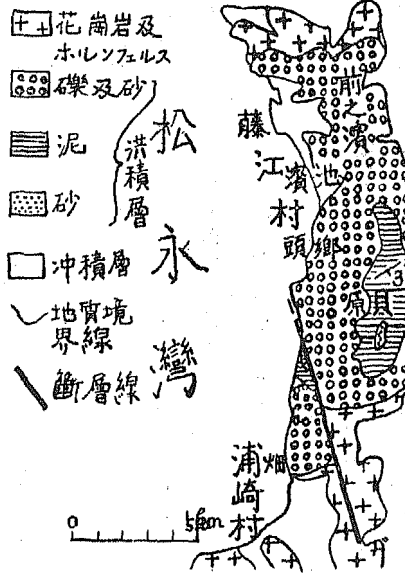 花崗岩及
ホルンフェルス
礫及砂
泥
砂
洪積層
冲積層
地質境
界線
斷層線
松永灣
藤江村
濱頭
前之濱
池郷
貝
原
畑
浦崎村
0